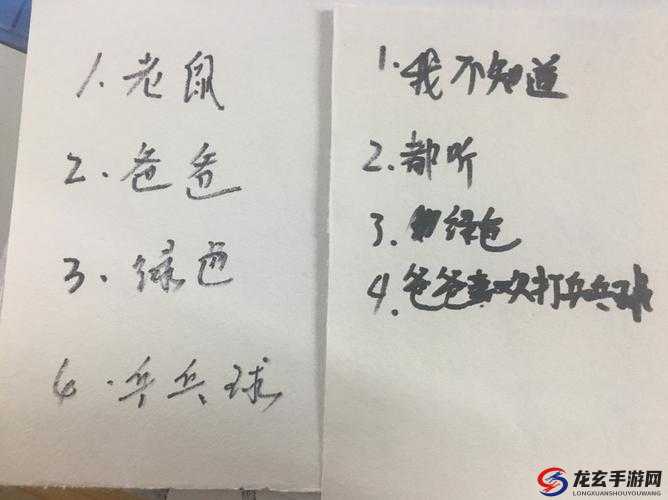 1. 老鼠
2. 爸爸
3. 绿色
4. 乒乓球
1. 我不知道
2. 都听
3. 绿色
4. 爸爸喜欢打乒乓球
龙玄手游网
LONGXUANSHOUYOUWANG